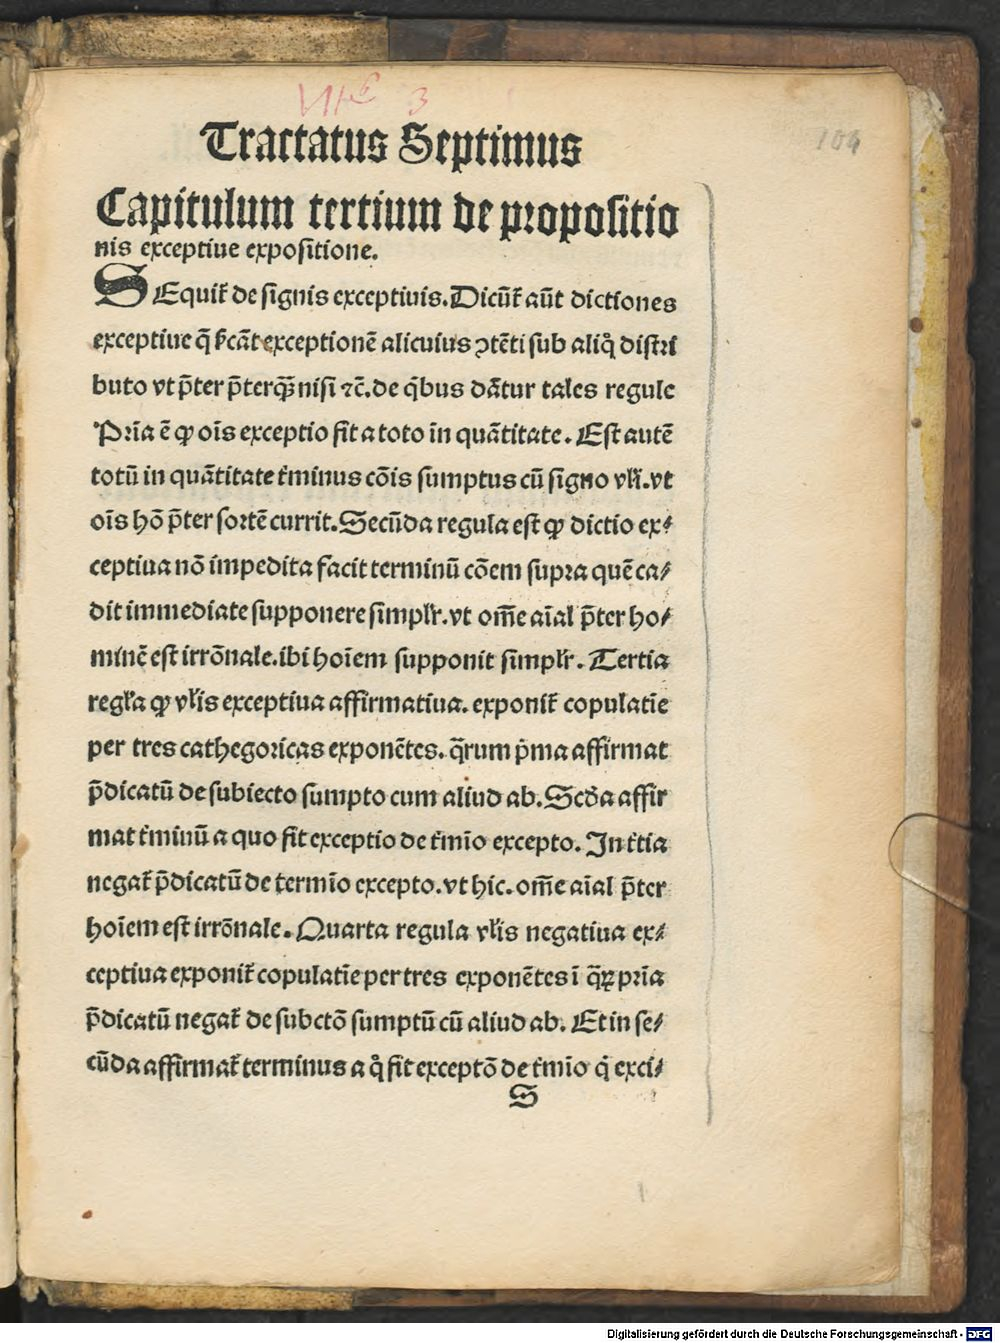 VII 3
104
Tractatus Septimus
Capitulum tertium de propositio
nis exceptiue expositione.
SEquit̃ de signis exceptiuis. Dicũt̃ aũt dictiones
exceptiue q̃ ẜcãt exceptionẽ alicuius ꝯtẽti sub aliq̊ distri
buto vt p̃ter p̃terq̃ꝫ nisi ⁊c̃. de q̇bus dãtur tales regule
Pria ẽ ꝙ oĩs exceptio fit a toto in quãtitate. Est autẽ
totũ in quãtitate t̃minus cõis sumptus cũ signo vl̃i. vt
oĩs hõ p̃ter sortẽ currit. Secũda regula est ꝙ dictio ex⸗
ceptiua nõ impedita facit terminũ cõem supra quẽ ca⸗
dit immediate supponere simpl̃r. vt om̃e aĩal p̃ter ho⸗
minẽ est irrõnale. ibi hoĩem supponit simpl̃r. Tertia
regl̃a ꝙ vl̃is exceptiua affirmatiua. exponit̃ copulatĩe
per tres cathegoricas exponẽtes. q̃rum p̃ma affirmat
p̃dicatũ de subiecto sumpto cum aliud ab. Scd̃a affir
mat t̃minũ a quo fit exceptio de t̃mĩo excepto. In t̃tia
negat̃ p̃dicatũ de termĩo excepto. vt hic. om̃e aĩal p̃ter
hoĩem est irrõnale. Quarta regula vl̃is negatiua ex⸗
ceptiua exponit̃ copulatĩe per tres exponẽtes ĩ q̃ꝝ pria
p̃dicatũ negat̃ de subctõ sumptũ cũ aliud ab. Et in se⸗
cũda affirmat̃ terminus a q̊ fit exceptõ de t̃mĩo q̇ exci⸗
S
Digitalisierung gefördert durch die Deutsche Forschungsgemeinschaft - DFG